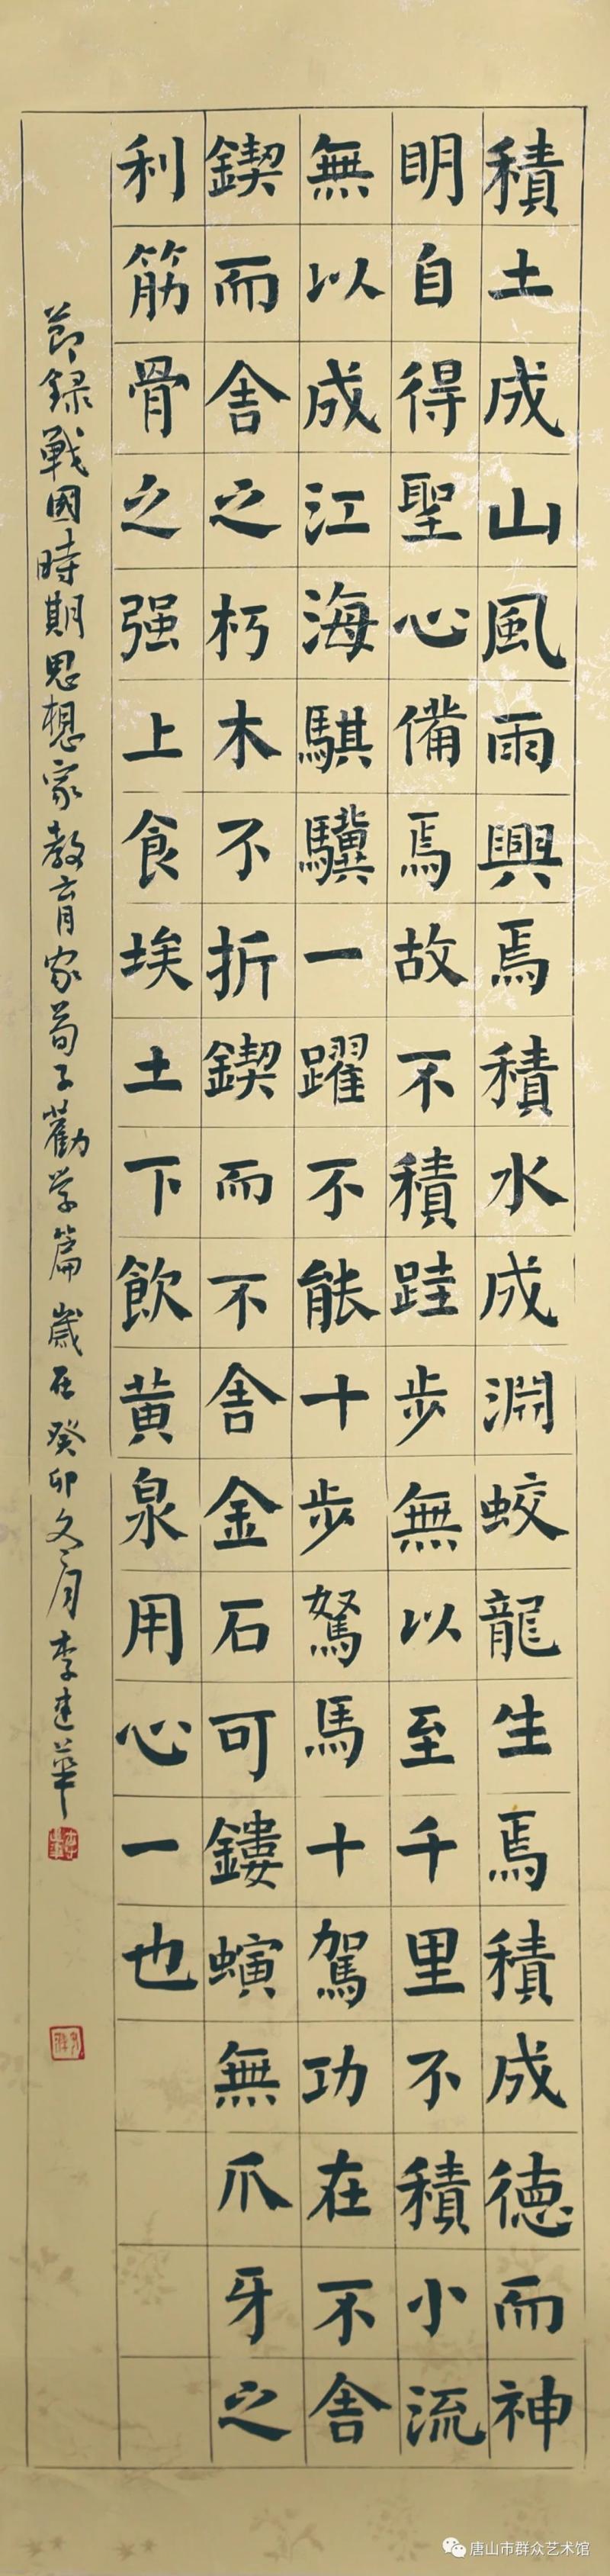 積土成山風雨興焉積水成淵蛟龍生焉積成德而神
明自得聖心備焉故不積跬步無以至千里不積小流
無以成江海騏驥一躍不能十步駑馬十駕功在不舍
鍥而舍之朽木不折鍥而不舍金石可鏤螾無爪牙之
利筋骨之强上食埃土下飲黄泉用心一也
節録戰國時期思想家教育家荀子勸学篇歲在癸卯文月李建華
唐山市群众艺术馆